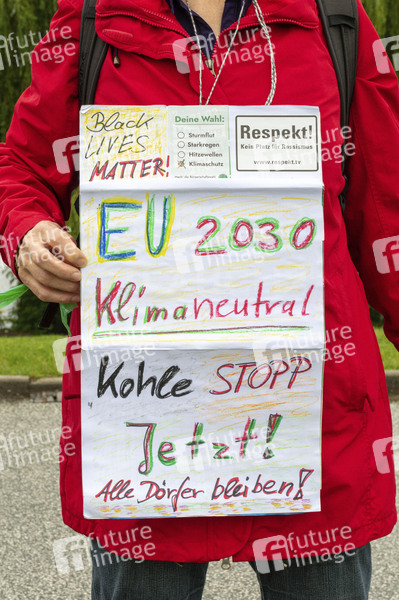 Black
LIVES
MATTER!
Deine Wahl:
Sturmflut
Starkregen
Hitzewellen
Klimaschutz
Respekt!
Kein Platz für Rassismus
www.respekt.tv
EU 2030
Klimaneutral
Kohle STOPP
Jetzt!
Alle Dörfer bleiben!
future image